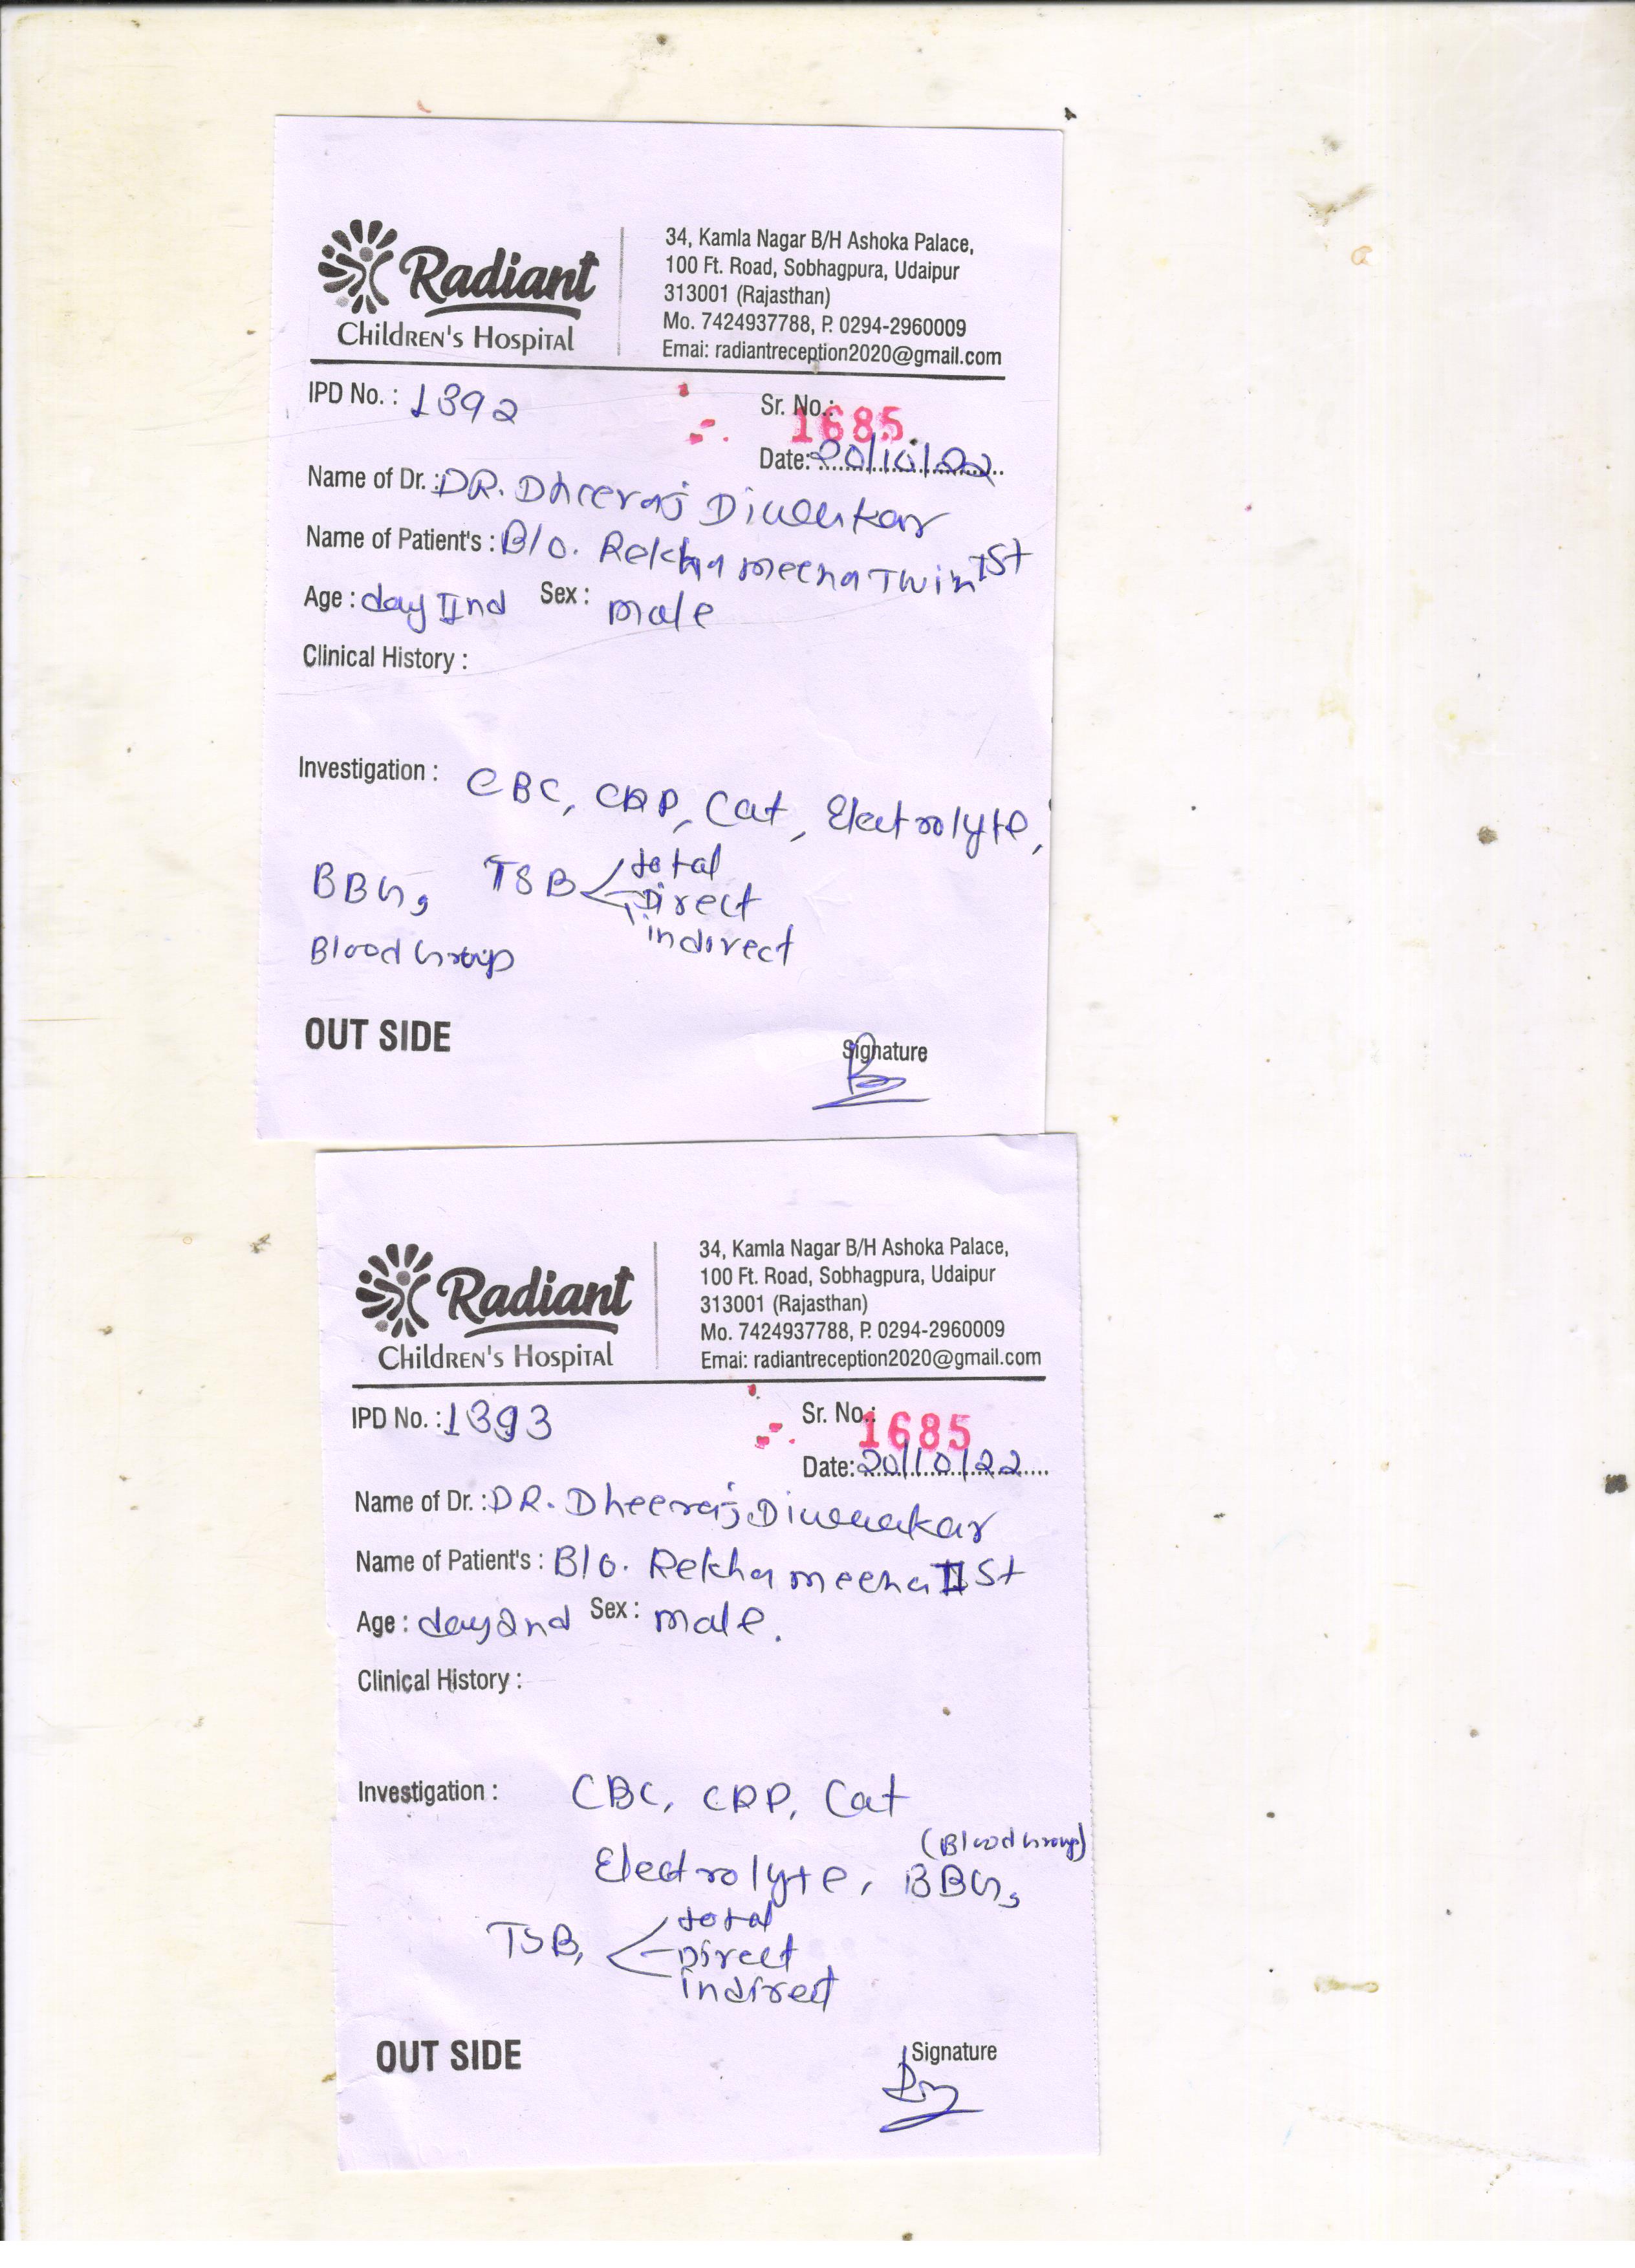 Radiant
Children's Hospital
34, Kamla Nagar B/H Ashoka Palace,
100 Ft. Road, Sobhagpura, Udaipur
313001 (Rajasthan)
Mo. 7424937788, P. 0294-2960009
Emai: radiantreception2020@gmail.com
IPD No. : 1392
Sr. No.: 1685
Date: 20/10/22
Name of Dr. : DR. Dheeraj Diwakar
Name of Patient's : B/o. Rekha meena Twin Ist
Age : day IInd Sex : male
Clinical History :
Investigation : CBC, CRP, Cat, Electrolyte,
BBG, TSB total
Direct
indirect
Blood Group
OUT SIDE
Signature
Radiant
Children's Hospital
34, Kamla Nagar B/H Ashoka Palace,
100 Ft. Road, Sobhagpura, Udaipur
313001 (Rajasthan)
Mo. 7424937788, P. 0294-2960009
Emai: radiantreception2020@gmail.com
IPD No. : 1393
Sr. No.: 1685
Date: 20/10/22
Name of Dr. : DR. Dheeraj Diwakar
Name of Patient's : B/o. Rekha meena II st
Age : day 2nd Sex : male.
Clinical History :
Investigation : CBC, CRP, Cat
(Blood Group)
Electrolyte, BBG,
TSB, total
Direct
indirect
OUT SIDE
Signature